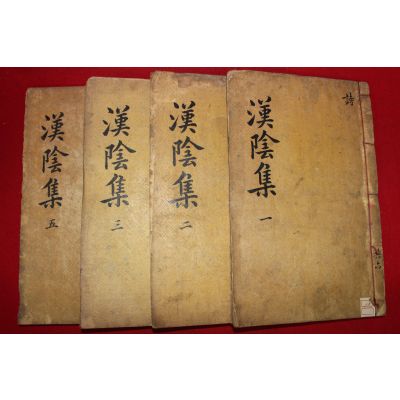 漢陰集 一
詩
共六
漢陰集 二
漢陰集 三
漢陰集 五